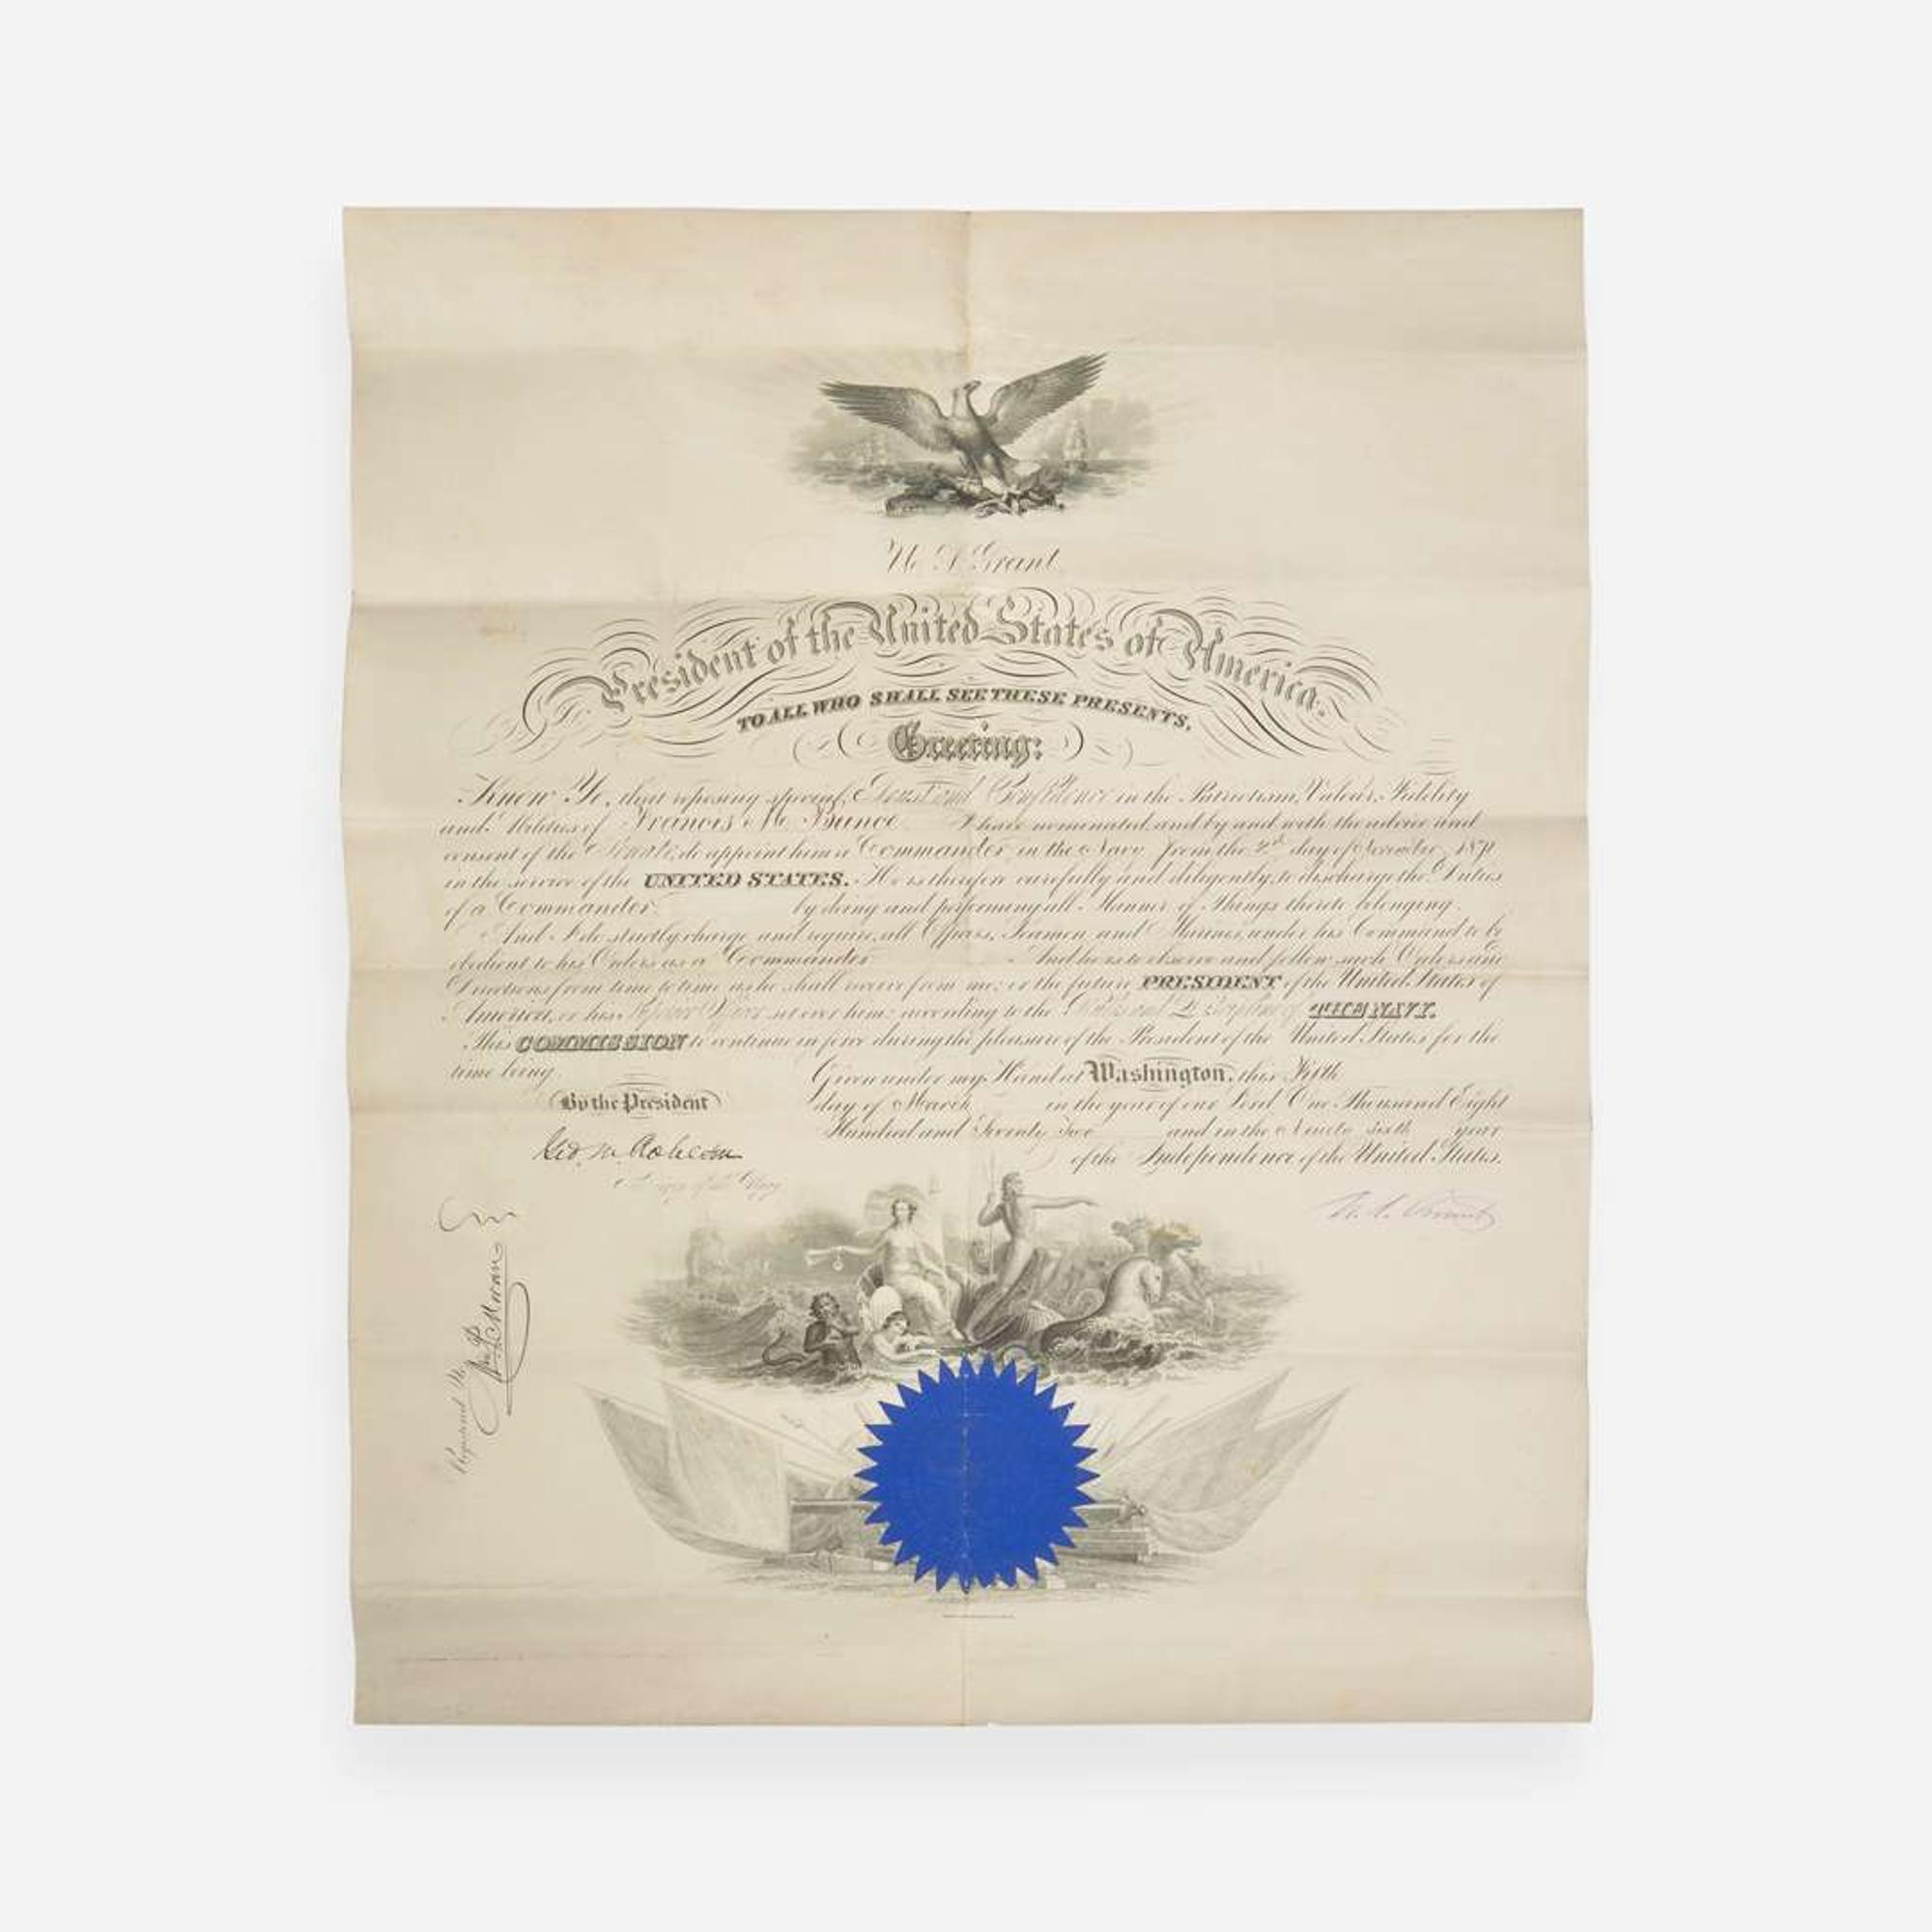 U. S. Grant
President of the United States of America.
TO ALL WHO SHALL SEE THESE PRESENTS,
Greeting:
Know Ye, that reposing special Trust and Confidence in the Patriotism, Valour, Fidelity
and Abilities of Francis M. Bunce I have nominated, and by and with the advice and
consent of the Senate, do appoint him a Commander in the Navy from the 2nd day of November 1871
in the service of the UNITED STATES. He is therefore carefully and diligently to discharge the Duties
of a Commander by doing and performing all Manner of Things thereto belonging.
And I do strictly charge and require all Officers, Seamen and Marines under his Command to be
obedient to his Orders as a Commander And he is to observe and follow such Orders and
Directions from time to time as he shall receive from me, or the future PRESIDENT of the United States of
America, or his Superior Officer set over him, according to the Rules and Discipline of THE NAVY.
This COMMISSION to continue in force during the pleasure of the President of the United States for the
time being.
Given under my Hand at Washington, this Fifth
day of March in the year of our Lord One Thousand Eight
Hundred and Seventy Two and in the Ninety sixth year
of the Independence of the United States.
By the President
Geo. M. Robeson
Secretary of the Navy
U. S. Grant
Registered